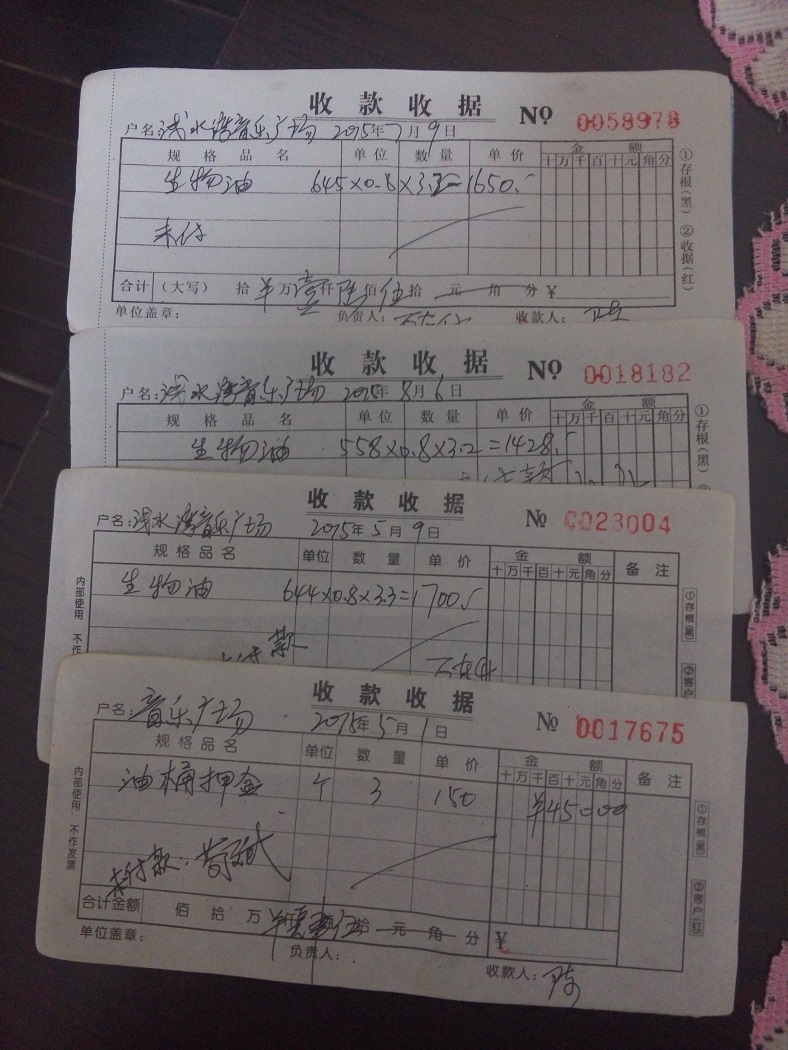 收款收据 № 0058978
户名：浅水湾音乐广场 2015年7月9日
规格品名 单位 数量 单价 金额
十万千百十元角分
生物油 645×0.8×3.2=1650.-
未付
合计（大写） 拾 万壹仟陆佰伍拾 元 角 分 ¥
单位盖章： 负责人： 收款人：
①存根（黑） ②收据（红）
收款收据 № 0018182
户名：浅水湾音乐广场 2015年8月6日
规格品名 单位 数量 单价 金额
十万千百十元角分
生物油 558×0.8×3.2=1428.-
①存根（黑）
收款收据 № 0023004
户名：浅水湾音乐广场 2015年5月9日
规格品名 单位 数量 单价 金额 备注
十万千百十元角分
生物油 644×0.8×3.3=1700.-
款
内部使用 不作
①存根（黑） ②客户
收款收据 № 0017675
户名：音乐广场 2015年5月1日
规格品名 单位 数量 单价 金额 备注
十万千百十元角分
油桶押金 个 3 150 ¥45000
未付款：
合计金额 佰 拾 万 仟 伍拾 元 角 分 ¥
单位盖章： 负责人： 收款人：陈
内部使用 不作发票
①存根（黑） ②客户（红）